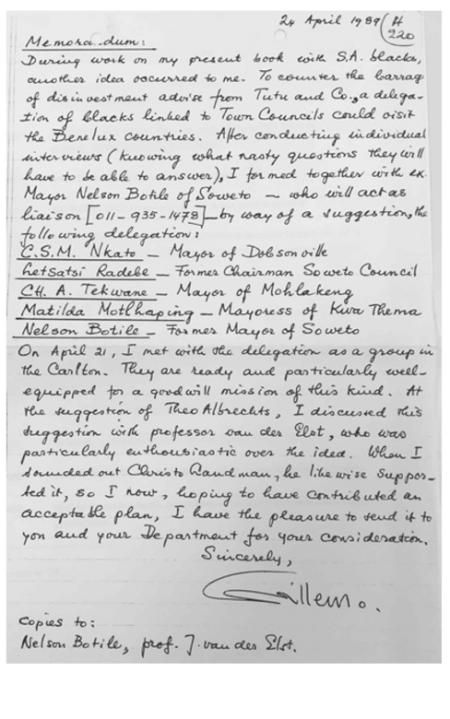 24 April 1989 (H
220
Memorandum:
During work on my present book with S.A. blacks,
another idea occurred to me. To counter the barrag
of disinvestment advise from Tutu and Co., a delega-
tion of blacks linked to Town Councils could visit
the Benelux countries. After conducting individual
interviews (knowing what nasty questions they will
have to be able to answer), I formed together with ex.
Mayor Nelson Botile of Soweto – who will act as
liaison [011-935-1478] – by way of a suggestion, the
following delegation:
C.S.M. Nkato – Mayor of Dobsonville
Letsatsi Radebe – Former Chairman Soweto Council
CH. A. Tekwane – Mayor of Mohlakeng
Matilda Motlhaping – Mayoress of Kwa Thema
Nelson Botile – Former Mayor of Soweto
On April 21, I met with the delegation as a group in
the Carlton. They are ready and particularly well-
equipped for a goodwill mission of this kind. At
the suggestion of Theo Albrechts, I discussed this
suggestion with professor van der Elst, who was
particularly enthousiastic over the idea. When I
sounded out Christo Landman, he likewise suppor-
ted it, so I now, hoping to have contributed an
acceptable plan, I have the pleasure to send it to
you and your Department for your consideration.
Sincerely,
Copies to:
Nelson Botile, prof. J. van der Elst.